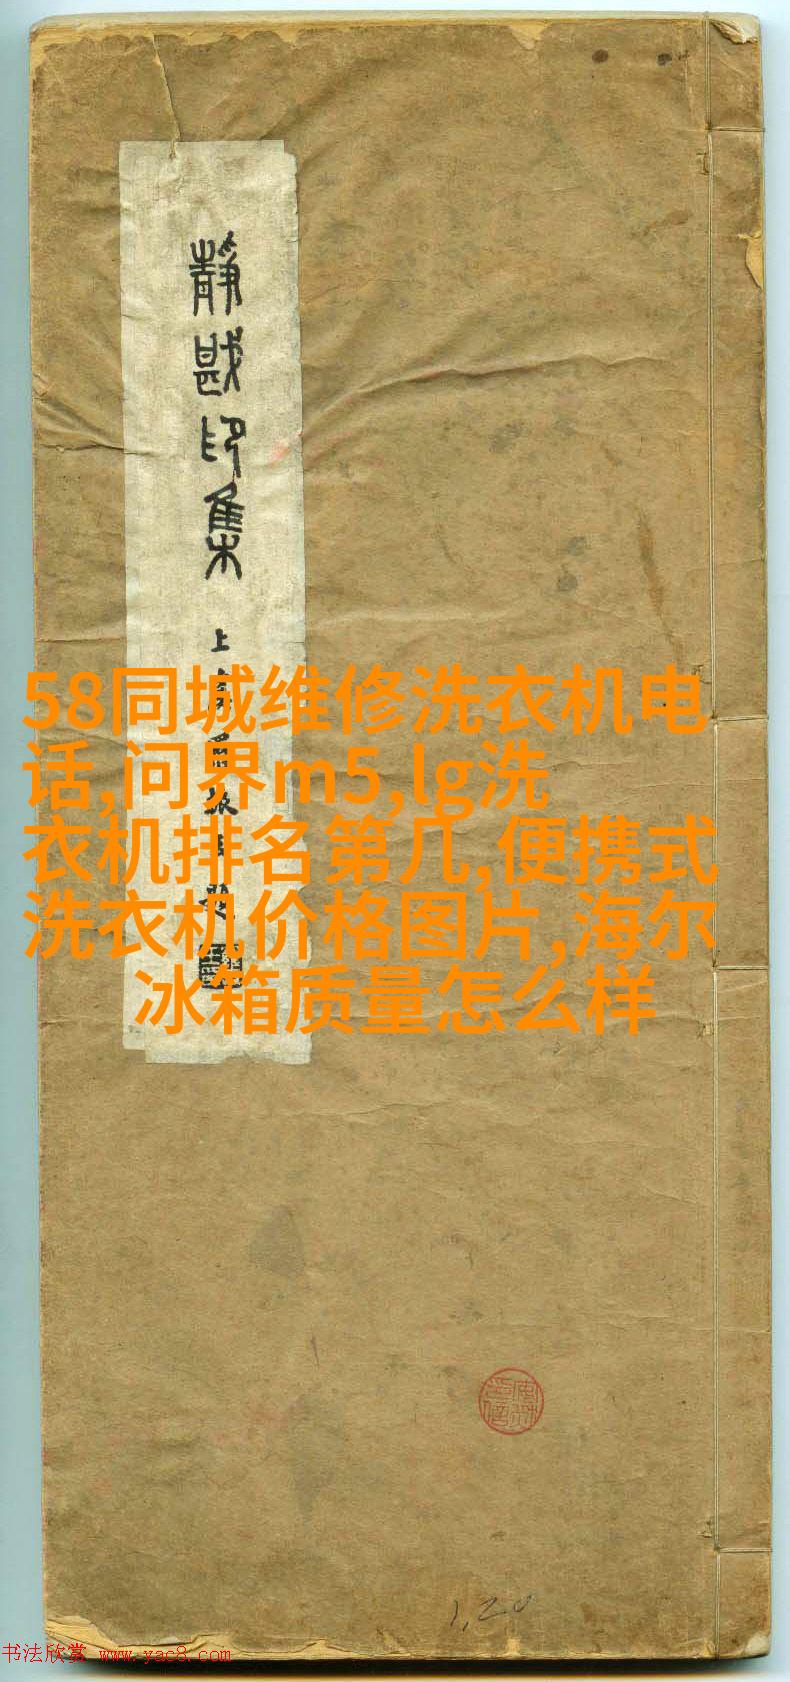 靜戡印集
58同城维修洗衣机电
话,问界m5,lg洗
衣机排名第几,便携式
洗衣机价格图片,海尔
冰箱质量怎么样
1,20
书法欣赏 www.yac8.com